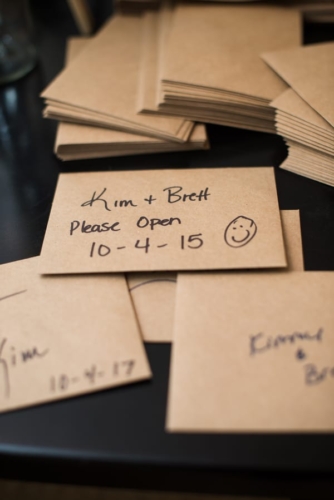 Kim + Brett
Please Open
10-4-15
Kim
10-4-17
&